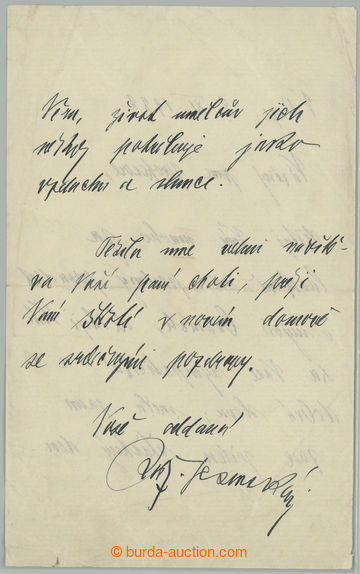 Vím, život umělcův jich
někdy potřebuje jako
vzduchu a slunce.
Těšila mne velmi návště-
va Vaší paní choti, přeji
Vám štěstí v novém domově
se srdečnými pozdravy.
Vaše oddaná
Růž. Jesenská
© burda-auction.com